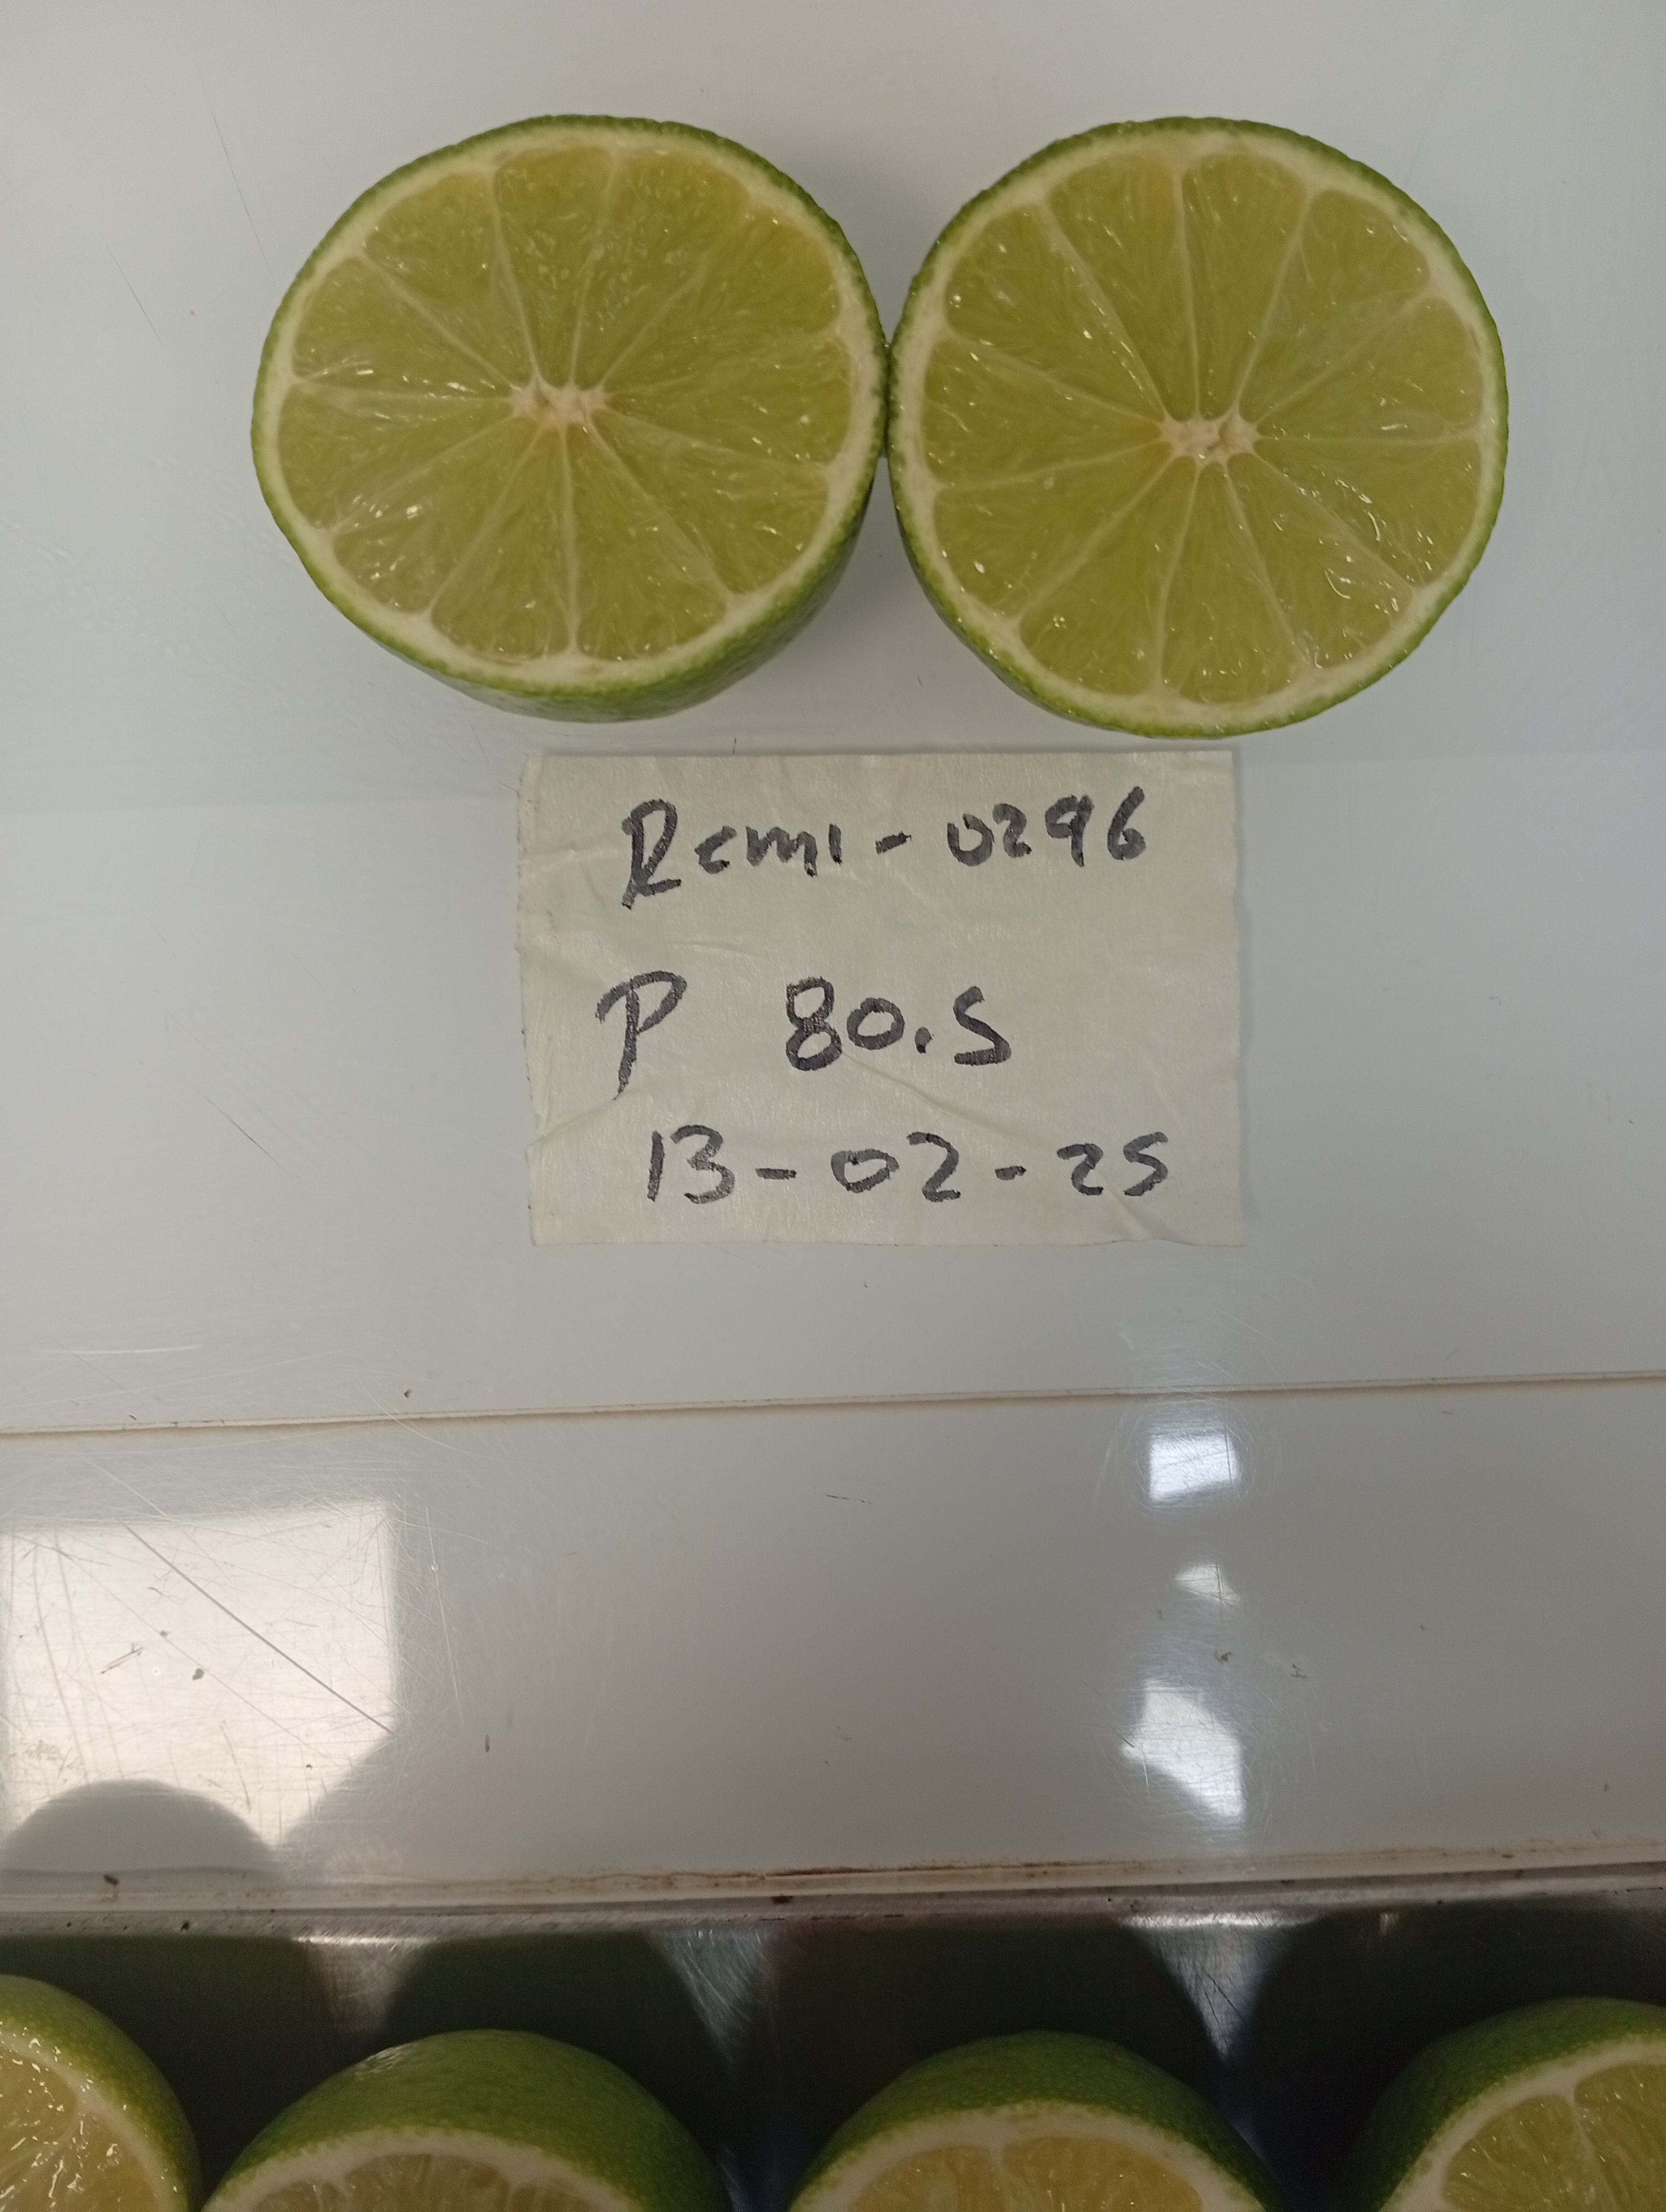 Remi-0296
P 80.5
13-02-25